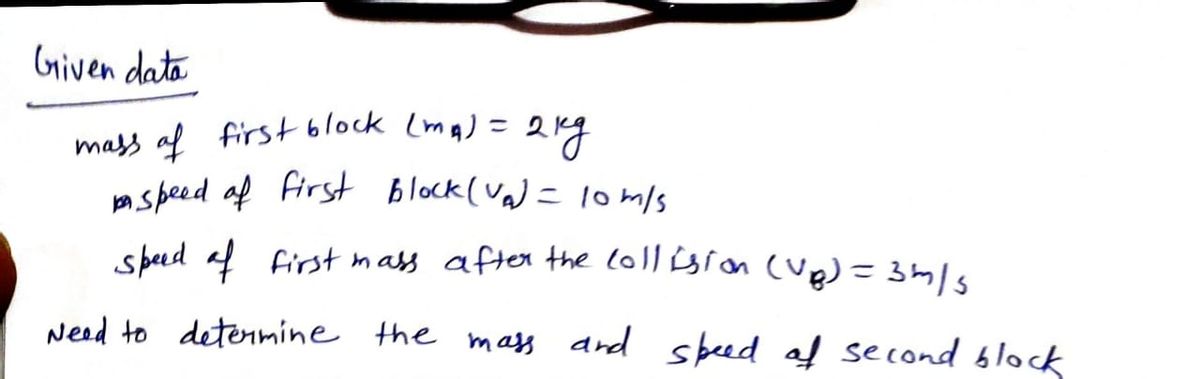 Given data
mass of first block (mA) = 2 kg
speed of first block (va) = 10 m/s
speed of first mass after the collision (vB) = 3m/s
Need to determine the mass and speed of second block